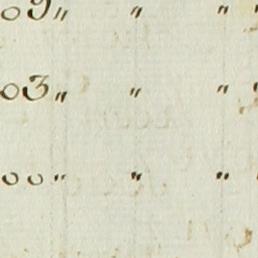 09 〃 〃 〃 〃
03 〃 〃 〃 〃
00 〃 〃 〃 〃